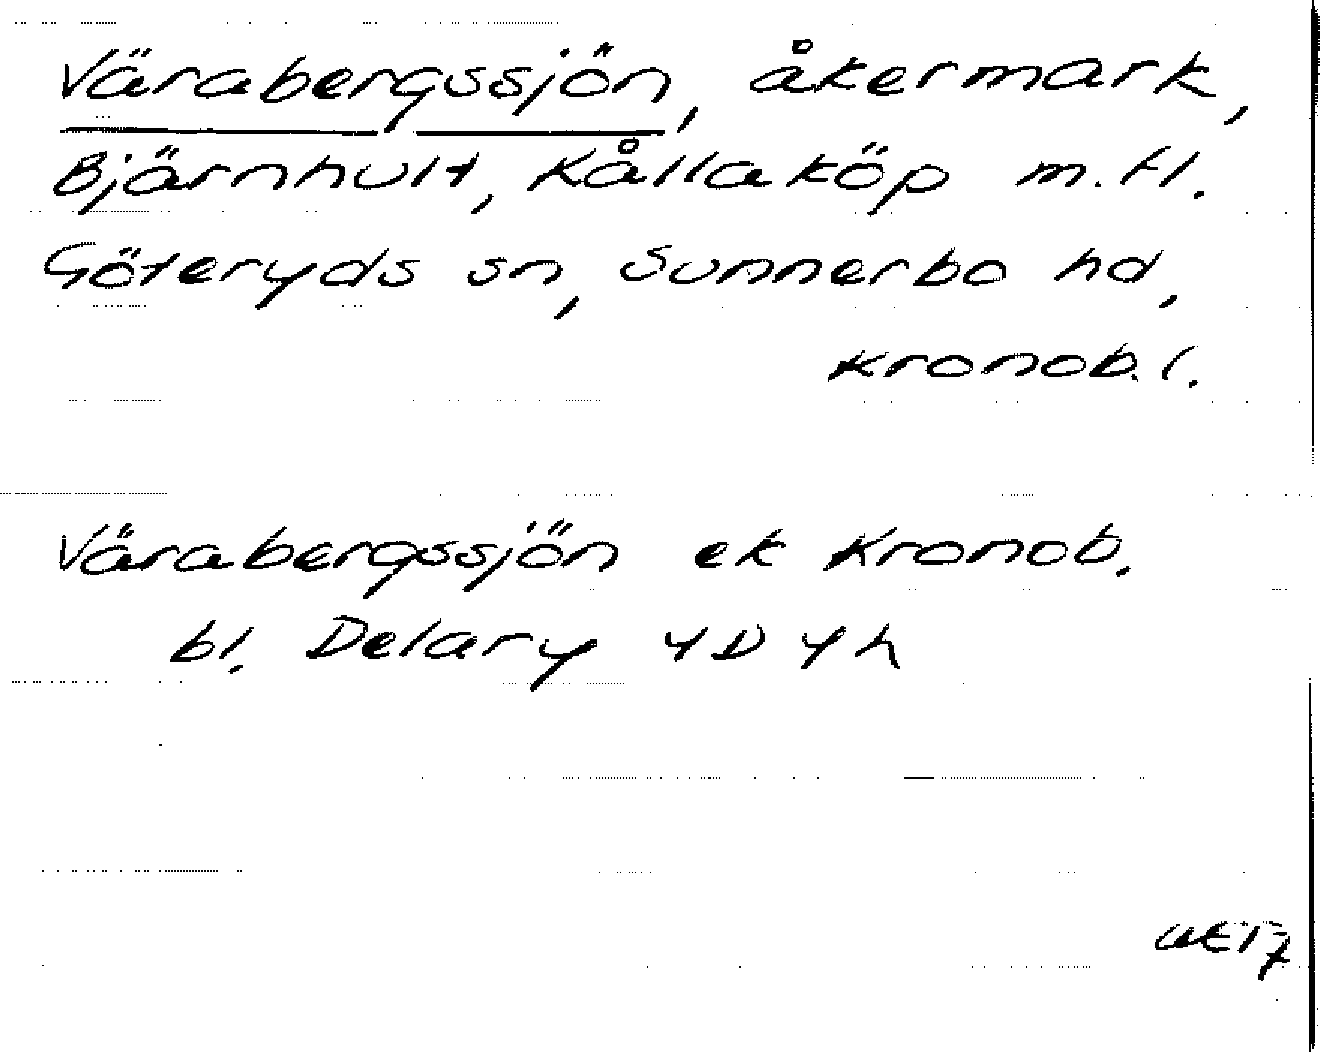 Värabergssjön, åkermark,
Bjärnhult, Kållaköp m.fl.
Göteryds sn, Sunnerbo hd,
Kronob. l.
Värabergssjön ek Kronob.
bl. Delary 4D 4h